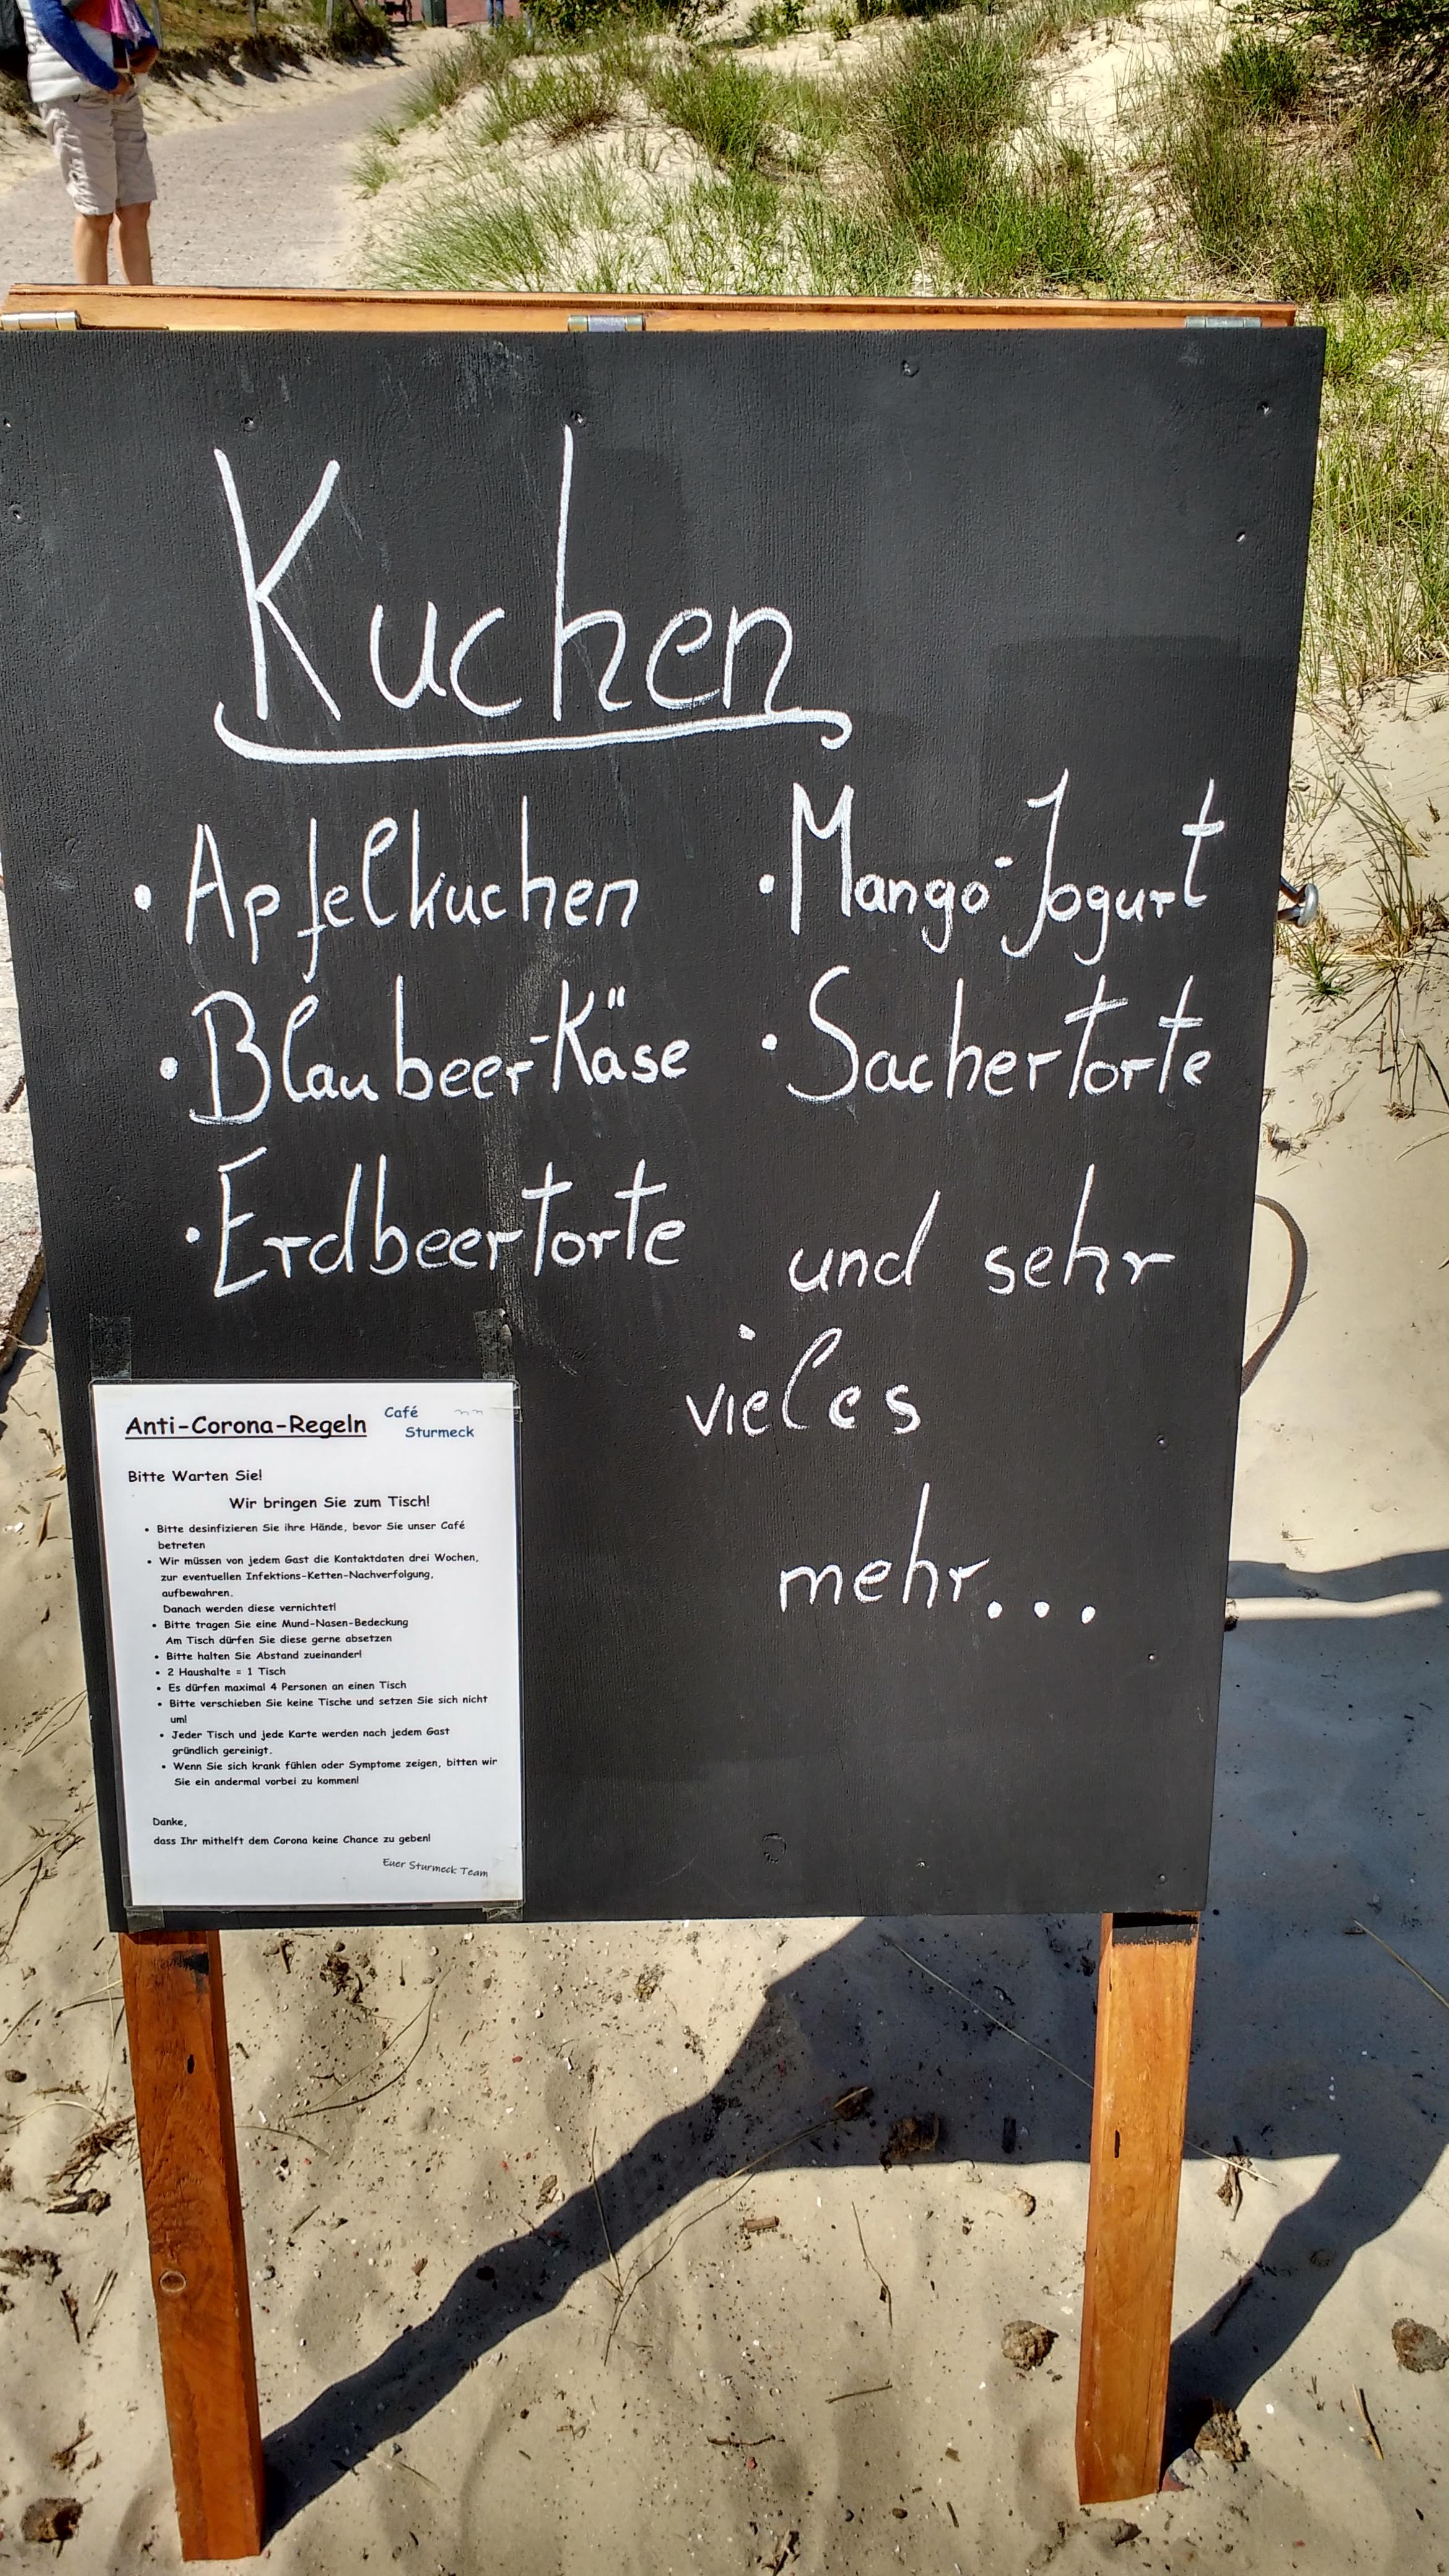 Kuchen
• Apfelkuchen
• Blaubeer-Käse
• Erdbeertorte
• Mango-Jogurt
• Sachertorte
und sehr
vieles
mehr...
Anti-Corona-Regeln
Café
Sturmeck
Bitte Warten Sie!
Wir bringen Sie zum Tisch!
• Bitte desinfizieren Sie ihre Hände, bevor Sie unser Café
betreten
• Wir müssen von jedem Gast die Kontaktdaten drei Wochen,
zur eventuellen Infektions-Ketten-Nachverfolgung,
aufbewahren.
Danach werden diese vernichtet!
• Bitte tragen Sie eine Mund-Nasen-Bedeckung
Am Tisch dürfen Sie diese gerne absetzen
• Bitte halten Sie Abstand zueinander!
• 2 Haushalte = 1 Tisch
• Es dürfen maximal 4 Personen an einen Tisch
• Bitte verschieben Sie keine Tische und setzen Sie sich nicht
um!
• Jeder Tisch und jede Karte werden nach jedem Gast
gründlich gereinigt.
• Wenn Sie sich krank fühlen oder Symptome zeigen, bitten wir
Sie ein andermal vorbei zu kommen!
Danke,
dass Ihr mithelft dem Corona keine Chance zu geben!
Euer Sturmeck Team